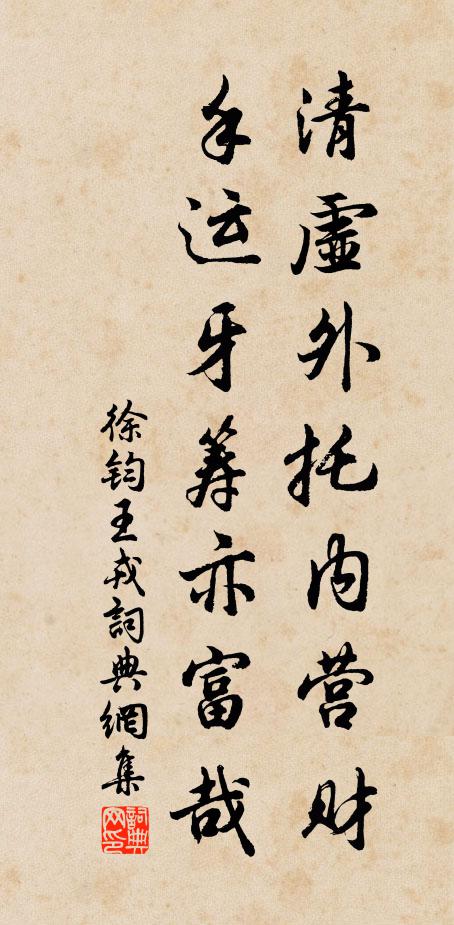 清虛外托内营财
手运牙筹亦富哉
徐钧王戎詞典網集
詞典网印